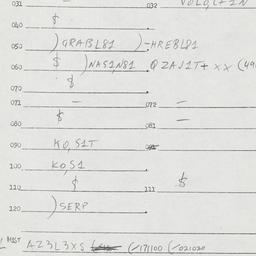 031 032 VOLO,C+IN
040 $
050 )GRABL81 )-HREBL81
060 $ )NAS1N81 QZAJ1T+ XX (49
$
070
071 — 072 —
$ —
081
090 KO,S1T
100 KO,S1
110 $ 111 $
120 )SERP
MIST AZ3L3XS (/171100 (/021020